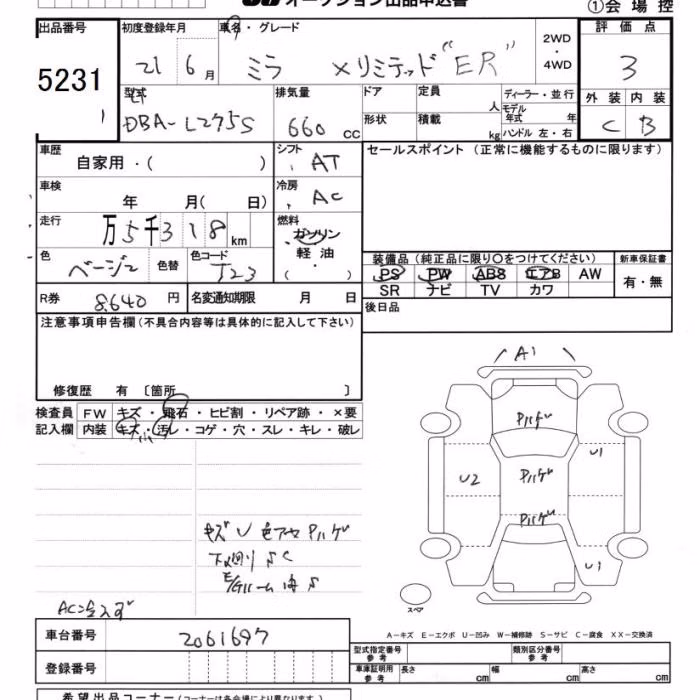 オークション出品申込書
①会場控
出品番号 初度登録年月 車名・グレード 2WD・4WD 評価点
5231 21 6月 ミラ XリミテッドER 3
型式 排気量 ドア 定員 人 ディーラー・並行 外装 内装
DBA-L275S 660 cc 形状 積載 kg モデル年式 年 ハンドル 左・右 C B
車歴 自家用・( ) シフト AT セールスポイント (正常に機能するものに限ります)
車検 年 月( 日) 冷房 AC
走行 万5千318km 燃料 ガソリン 軽油 ( ・ )
色 ベージュ 色替 色コード T23
装備品 (純正品に限り○をつけてください) 新車保証書
PS PW ABS エアB AW 有・無
SR ナビ TV カワ
R券 8,640円 名変通知期限 月 日
後日品
注意事項申告欄 (不具合内容等は具体的に記入して下さい)
修復歴 有 〔箇所 〕
A1
検査員 FW キズ・飛石・ヒビ割・リペア跡・×要
記入欄 内装 キズ・汚レ・コゲ・穴・スレ・キレ・破レ
Pハゲ
U1
U2 Pハゲ
Pハゲ
キズ U 色アセ Pハゲ
下廻りSC
U1
スペア
A-キズ E-エクボ U-凹み W-補修跡 S-サビ C-腐食 XX-交換済
車台番号 2061697
型式指定番号 参考 類別区分番号 参考
登録番号 車庫証明用 参考 長さ cm 幅 cm 高さ cm
希望出品コーナー (コーナーは各会場により異なります)